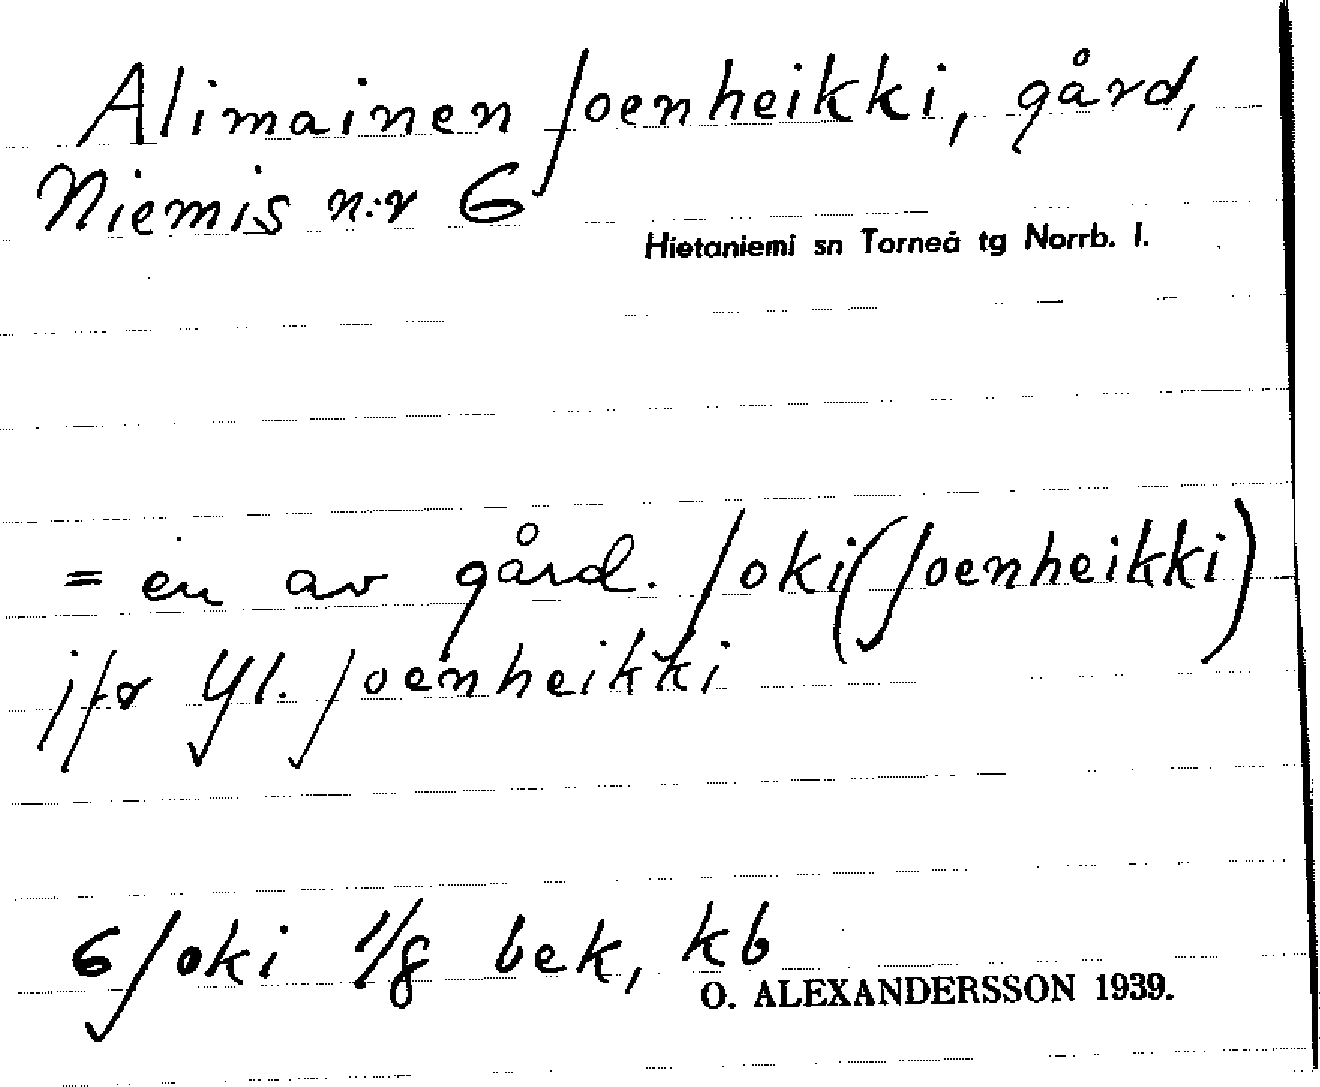 Alimainen Joenheikki, gård,
Niemis n:r 6
Hietaniemi sn Torneå tg Norrb. l.
= en av gård. Joki (Joenheikki)
jfr Yl. Joenheikki
6 Joki 1/8 bek, kb
O. ALEXANDERSSON 1939.